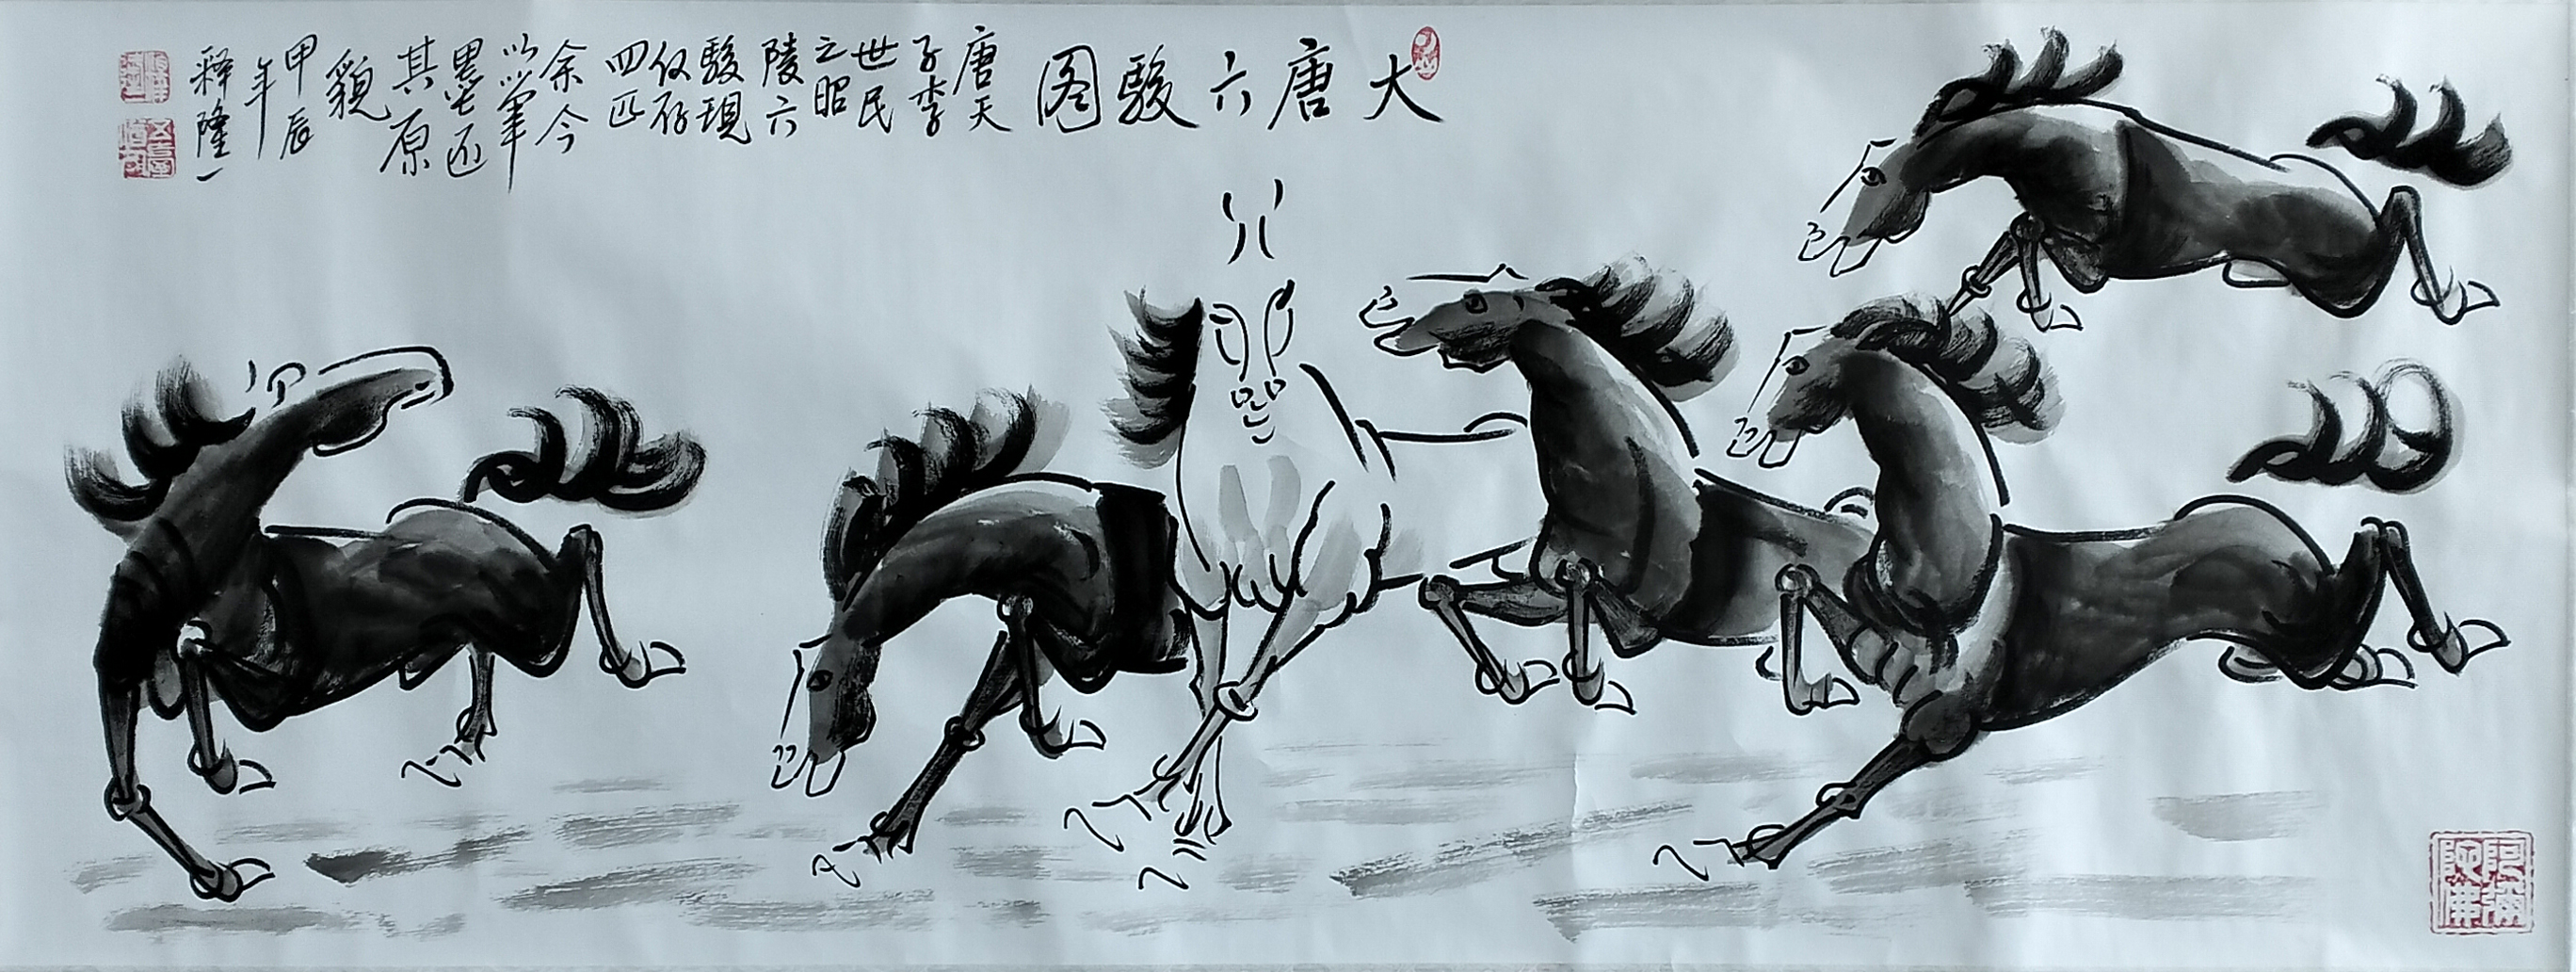 大唐六駿图
唐天
子李
世民
之昭
陵六
駿現
仅存
四匹
余今
以筆
墨还
其原
貌
甲辰
年
释隆一
阿彌陀佛